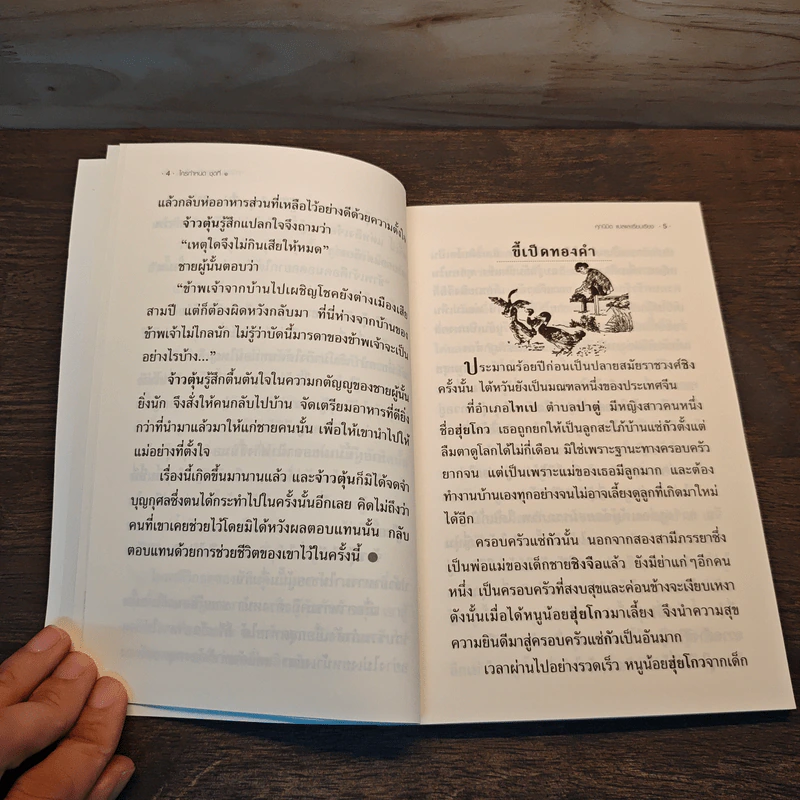 4 · ใครกำหนด ชุดที่ ๑
แล้วกลับห่ออาหารส่วนที่เหลือไว้อย่างดีด้วยความตั้งใจ
จ้าวตุ้นรู้สึกแปลกใจจึงถามว่า
“เหตุใดจึงไม่กินเสียให้หมด”
ชายผู้นั้นตอบว่า
“ข้าพเจ้าจากบ้านไปเผชิญโชคยังต่างเมืองเสีย
สามปี แต่ก็ต้องผิดหวังกลับมา ที่นี่ห่างจากบ้านของ
ข้าพเจ้าไม่ไกลนัก ไม่รู้ว่าบัดนี้มารดาของข้าพเจ้าจะเป็น
อย่างไรบ้าง...”
จ้าวตุ้นรู้สึกตื้นตันใจในความกตัญญูของชายผู้นั้น
ยิ่งนัก จึงสั่งให้คนกลับไปบ้าน จัดเตรียมอาหารที่ดียิ่ง
กว่าที่นำมาแล้วมาให้แก่ชายคนนั้น เพื่อให้เขานำไปให้
แม่อย่างที่ตั้งใจ
เรื่องนี้เกิดขึ้นมานานแล้ว และจ้าวตุ้นก็มิได้จดจำ
บุญกุศลซึ่งตนได้กระทำไปในครั้งนั้นอีกเลย คิดไม่ถึงว่า
คนที่เขาเคยช่วยไว้โดยมิได้หวังผลตอบแทนนั้น กลับ
ตอบแทนด้วยการช่วยชีวิตของเขาไว้ในครั้งนี้
· 5 ·
ขี้เป็ดทองคำ
ประมาณร้อยปีก่อนเป็นปลายสมัยราชวงศ์ชิง
ครั้งนั้น ไต้หวันยังเป็นมณฑลหนึ่งของประเทศจีน
ที่อำเภอไทเป ตำบลปาตู่ มีหญิงสาวคนหนึ่ง
ชื่อฮุ่ยโกว เธอถูกยกให้เป็นลูกสะใภ้บ้านแซ่กัวตั้งแต่
ลืมตาดูโลกได้ไม่กี่เดือน มิใช่เพราะฐานะทางครอบครัว
ยากจน แต่เป็นเพราะแม่ของเธอมีลูกมาก และต้อง
ทำงานบ้านเองทุกอย่างจนไม่อาจเลี้ยงดูลูกที่เกิดมาใหม่
ได้อีก
ครอบครัวแซ่กัวนั้น นอกจากสองสามีภรรยาซึ่ง
เป็นพ่อแม่ของเด็กชายชิงจือแล้ว ยังมีย่าแก่ๆอีกคน
หนึ่ง เป็นครอบครัวที่สงบสุขและค่อนข้างจะเงียบเหงา
ดังนั้นเมื่อได้หนูน้อยฮุ่ยโกวมาเลี้ยง จึงนำความสุข
ความยินดีมาสู่ครอบครัวแซ่กัวเป็นอันมาก
เวลาผ่านไปอย่างรวดเร็ว หนูน้อยฮุ่ยโกวจากเด็ก